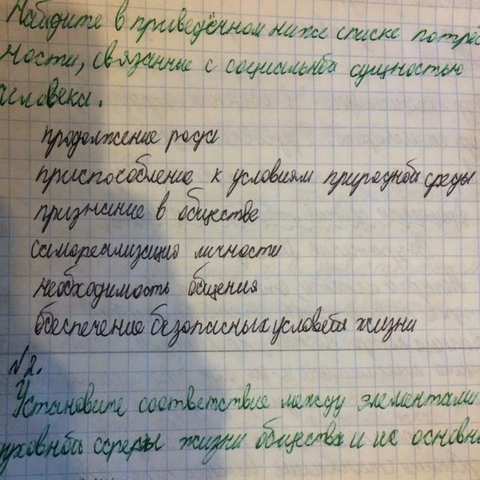 Найдите в приведённом ниже списке потреб
ности, связанные с социальной сущностью
человека.
продолжение рода
приспособление к условиям природной среды
признание в обществе
самореализация личности
необходимость общения
обеспечение безопасных условий жизни
№2.
Установите соответствие между элементами
духовной сферы жизни общества и их основн